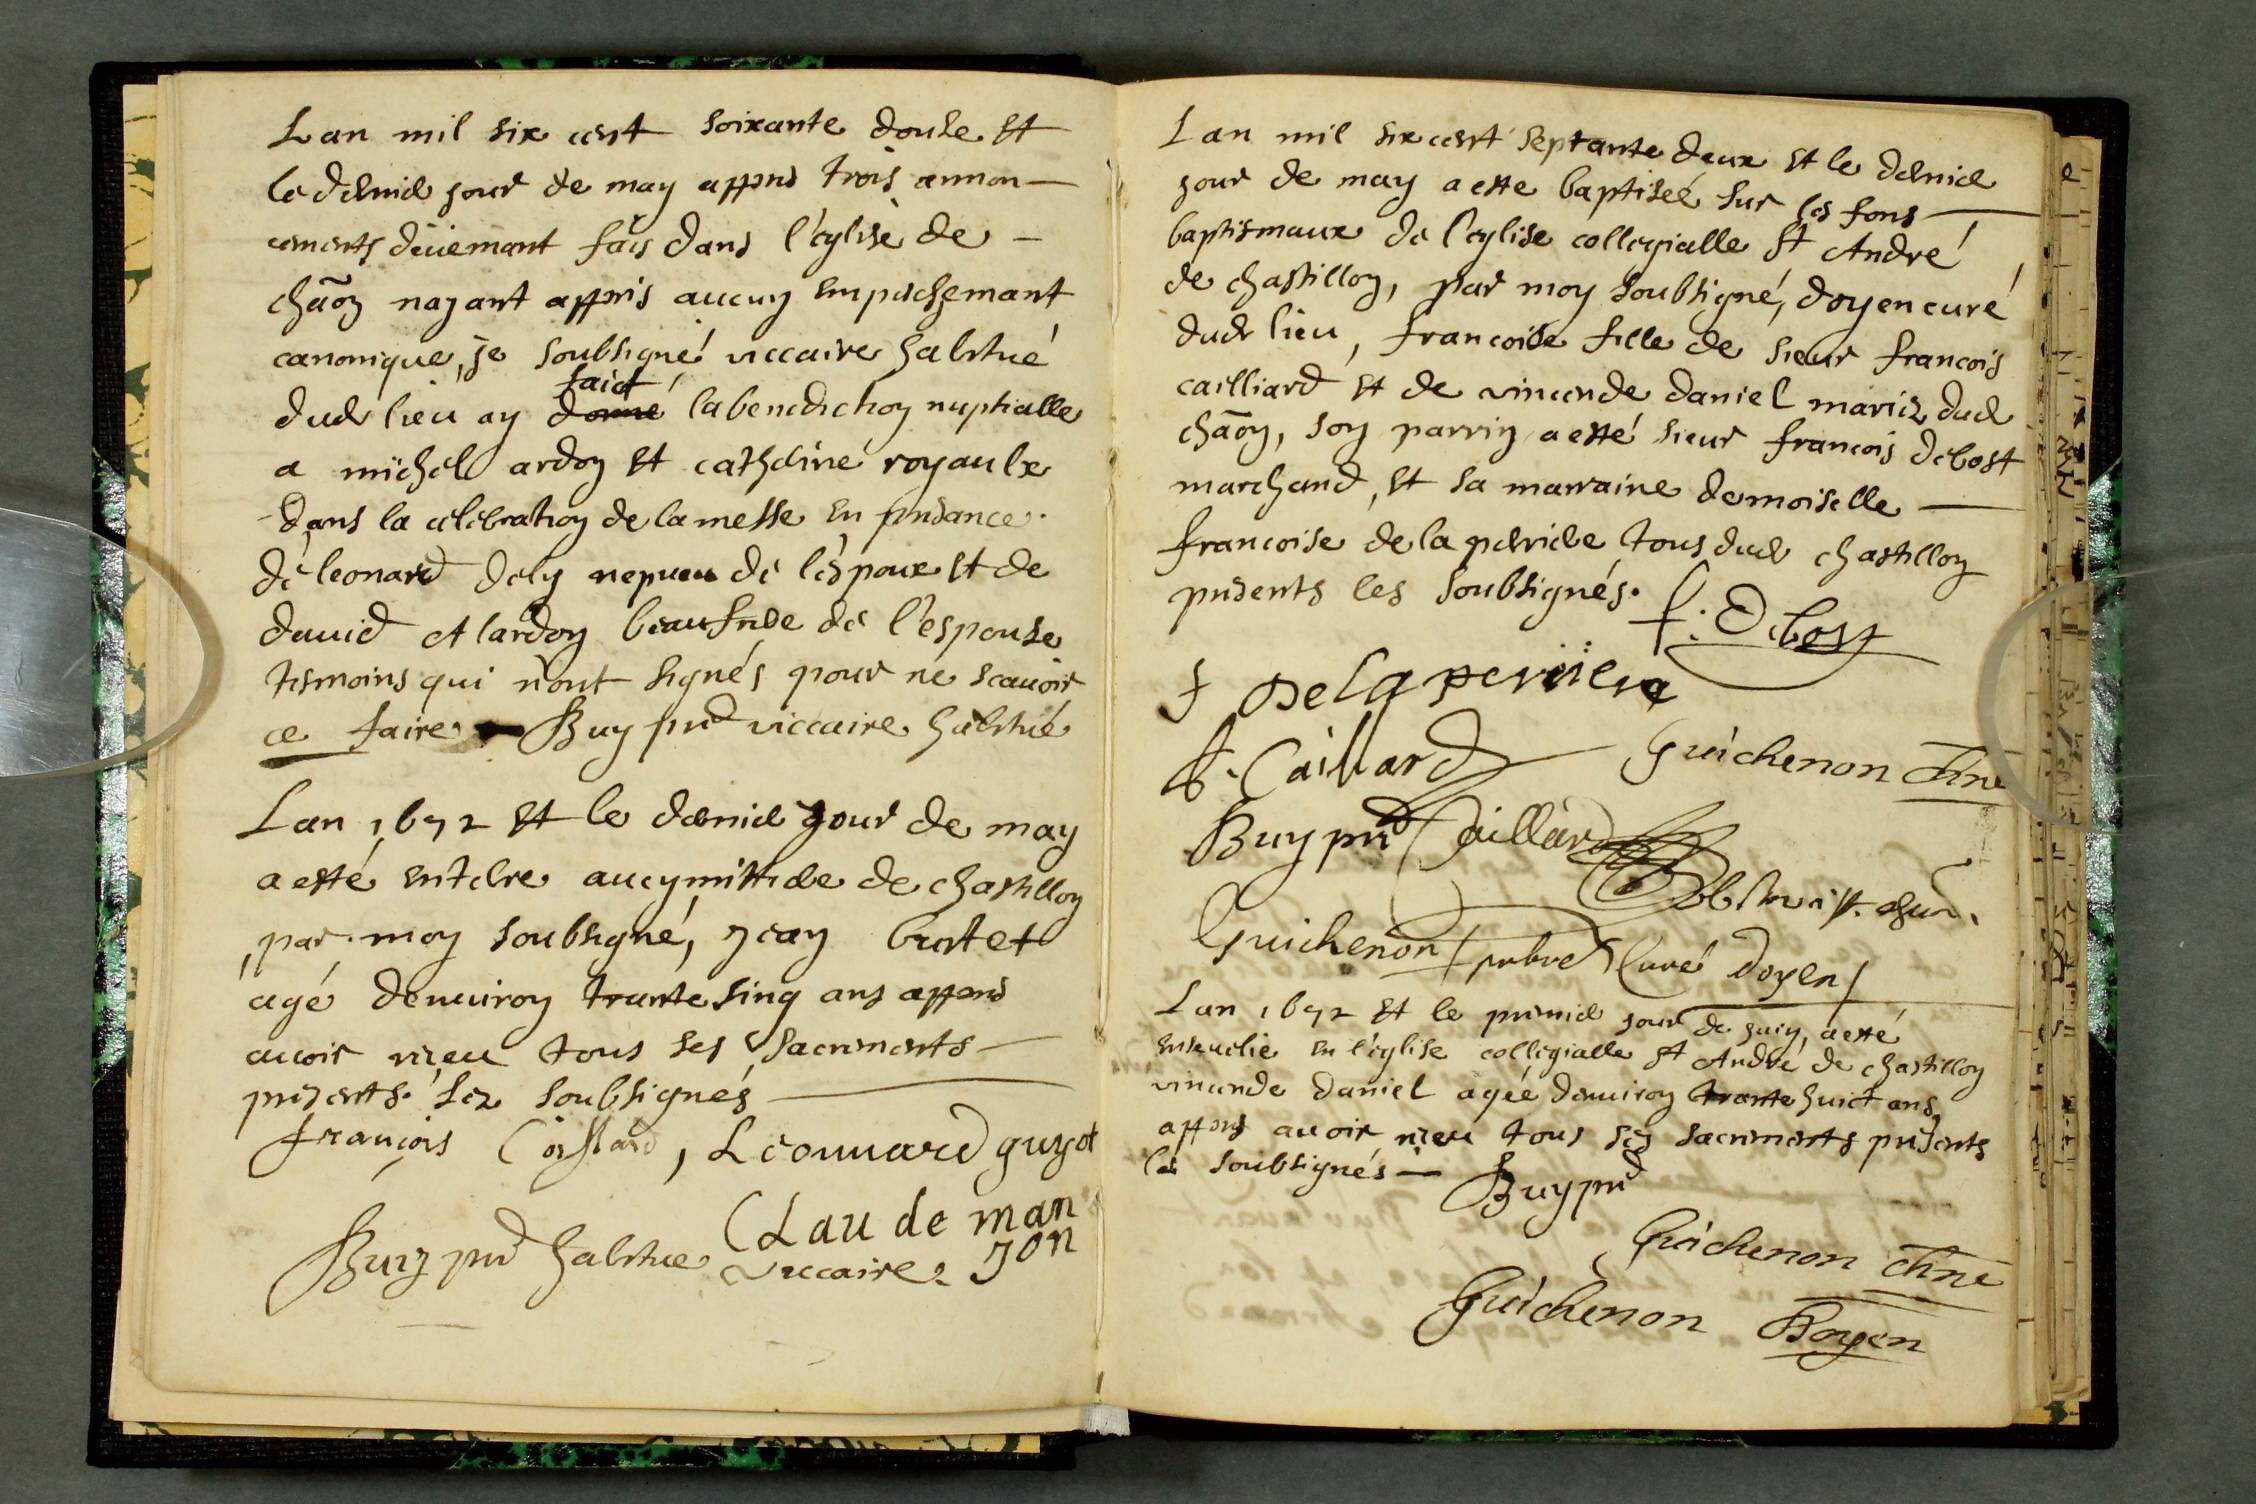 Lan mil six cent soixante douse et
le dernier jour de may appres trois annon-
cements deüement fais dans l'église de
chãon nayant appris aucun empeschemant
canonique, je soubsigné viccaire habitué
faict
dud lieu ay donné la benediction nuptialle
a michel ardon et catherine royaulx
dans la celebration de la messe en presance
de leonard dely nepueu de l'espoux et de
dauid Alardon beaufrere de l'espouse
tesmoins qui n'ont signés pour ne scauoir
ce faire Buy prb viccaire habitué
Lan 1672 et le dernier jour de may
a esté enterre au cymittiere de chastillon
par moy soubsigné, jean
agé denuiron trante sinq ans appres
auoir reçeu tous ses Sacrements
presents les soubsignés
françois Caillard, Leonnard guyot
Claude man
jon
Buy prb habitué viccaire
Lan mil six cent septante deux et le dernier
jour de may a este baptiseé sur les fons
baptismaux de l'eglise collegialle St André
de chastillon, par moy soubsigné, doyen curé
dud lieu, francoise fille de sieur francois
cailliard et de vincende daniel mariez dud
chãon, son parrin a esté sieur francois debost
marchand, et sa marraine demoiselle
francoise de la perriere tous dud chastillon
presents les soubsignés. f. Debost
f Delaperriere
f. Caillard Guichenon chne
Buy prb Caillard
Guichenon prbre Curé doyen
Lan 1672 et le premier jour de juin, a esté
enseuelie en l'église collegialle St André de chastillon
vincende daniel agée denuiron trante huict ans,
appres auoir reçeu tous ses sacrements presents
les soubsignés Buy prb
Guichenon chne
Guichenon Doyen